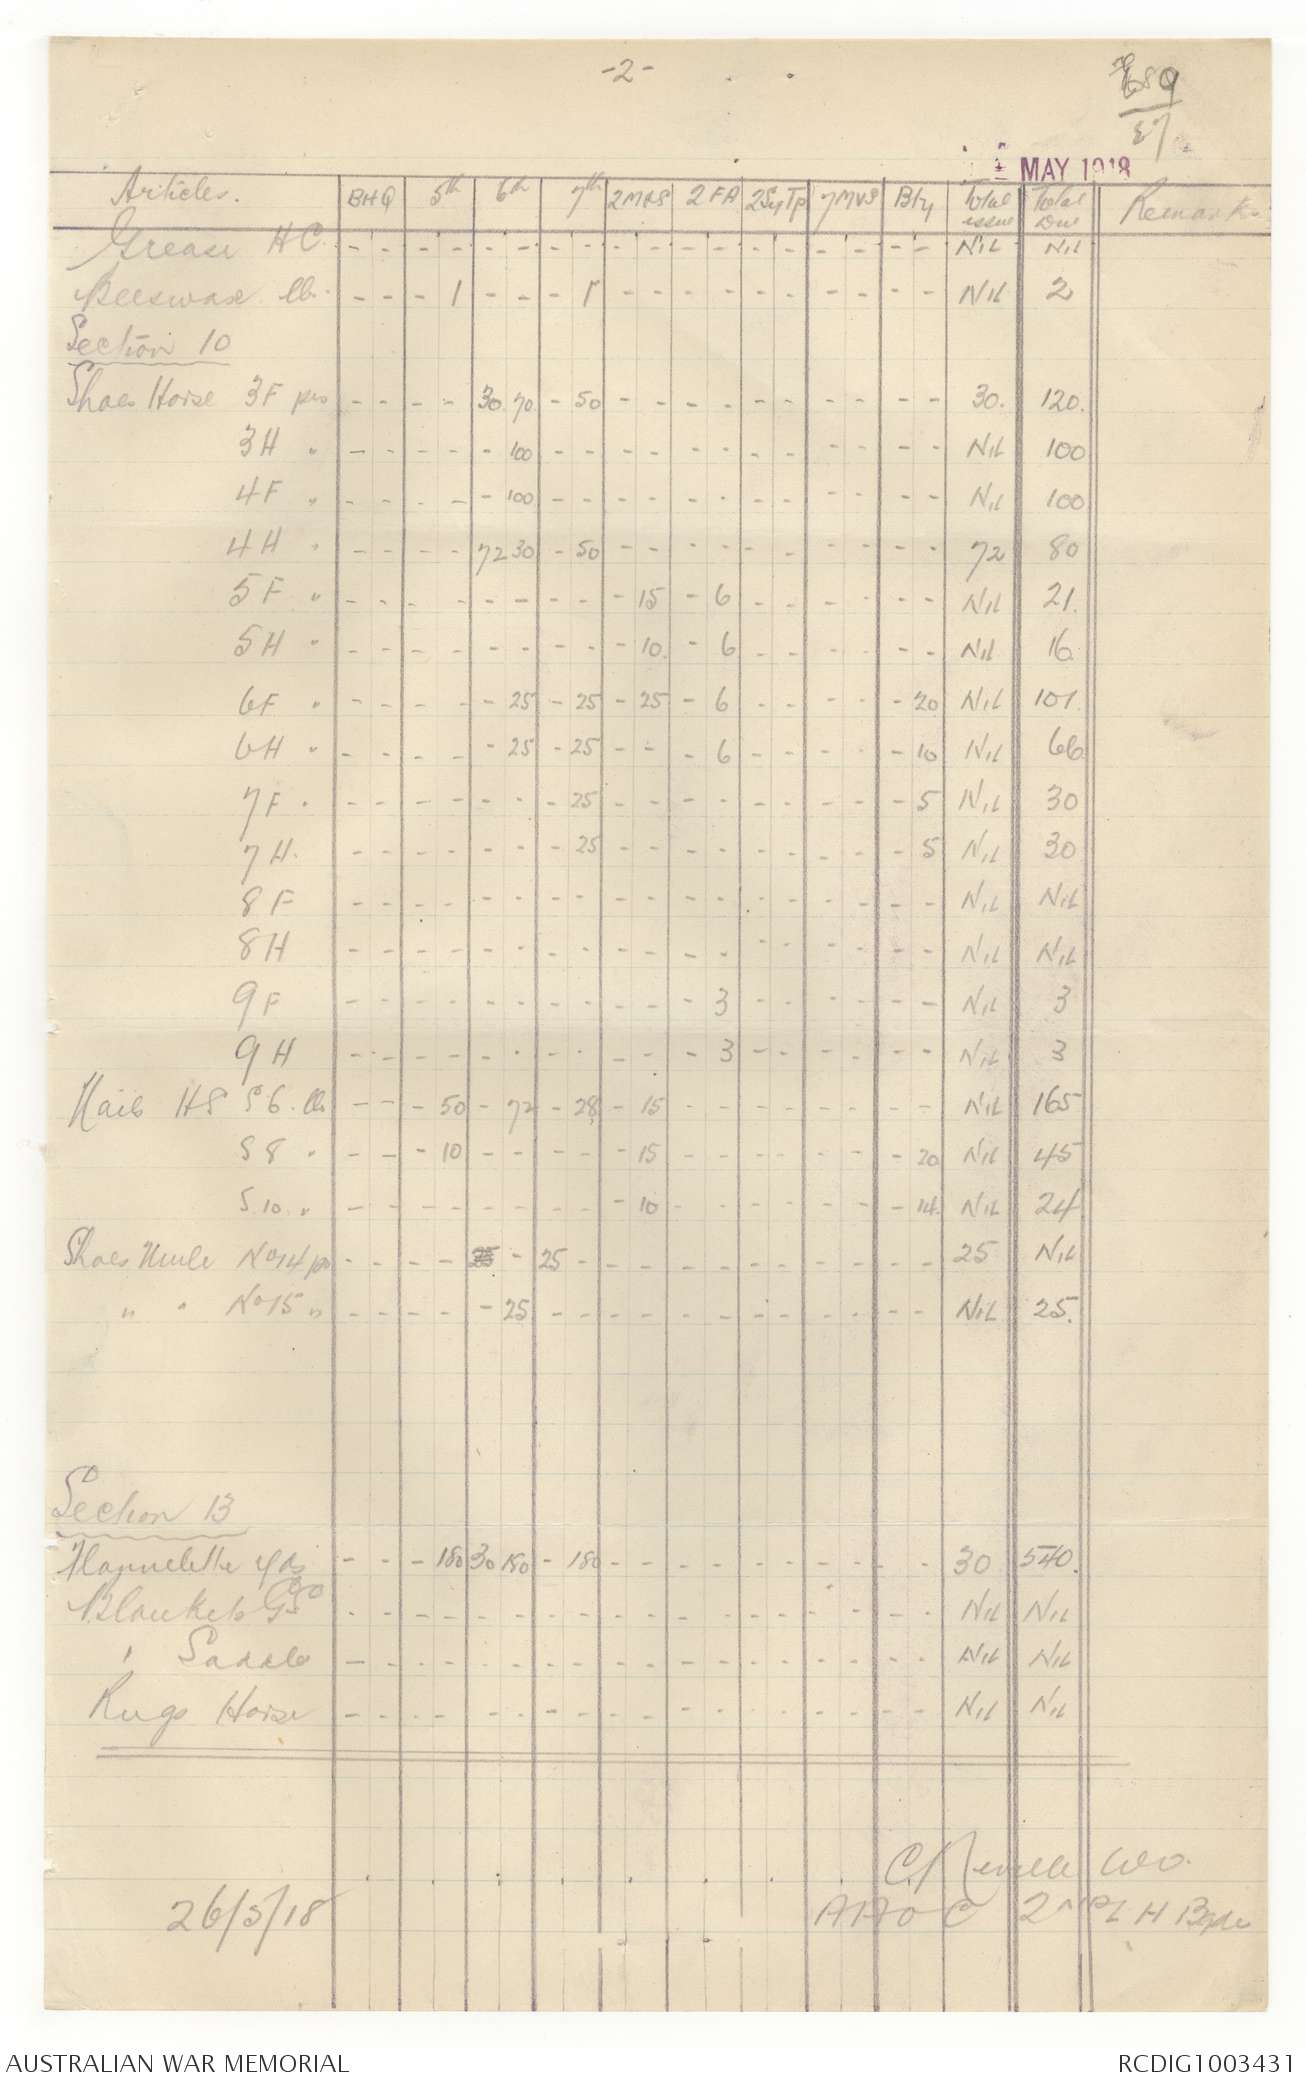 -2-
E89
27
MAY 1918
Articles. BHQ 5th 6th 7th 2MGS 2FA 2SyTp 7MVS Bty Total issue Total Due Remarks
Grease HC. - - - - - - - - - - - - - - - - - - Nil Nil
Beeswax lb. - - - 1 - - - 1 - - - - - - - - - - Nil 2
Section 10
Shoes Horse 3F prs - - - - 30 70 - 50 - - - - - - - - - - 30. 120.
3H " - - - - - 100 - - - - - - - - - - - - Nil 100
4F " - - - - - 100 - - - - - - - - - - - - Nil 100
4H " - - - - 72 30 - 50 - - - - - - - - - - 72 80
5F " - - - - - - - - - 15 - 6 - - - - - - Nil 21.
5H " - - - - - - - - - 10. - 6 - - - - - - Nil 16
6F " - - - - - 25 - 25 - 25 - 6 - - - - - 20 Nil 101.
6H " - - - - - 25 - 25 - - - 6 - - - - - 10 Nil 66
7F " - - - - - - - 25 - - - - - - - - - 5 Nil 30
7H. - - - - - - - 25 - - - - - - - - - 5 Nil 30
8F - - - - - - - - - - - - - - - - - - Nil Nil
8H - - - - - - - - - - - - - - - - - - Nil Nil
9F - - - - - - - - - - - 3 - - - - - - Nil 3
9H - - - - - - - - - - - 3 - - - - - - Nil 3
Nails HS S6. lbs - - - 50 - 72 - 28 - 15 - - - - - - - - Nil 165
S8 " - - - 10 - - - - - 15 - - - - - - - 20 Nil 45
S.10. " - - - - - - - - - 10 - - - - - - - 14. Nil 24
Shoes Mule No14 prs - - - - 25 - 25 - - - - - - - - - - - 25 Nil
" " No15 " - - - - - 25 - - - - - - - - - - - - Nil 25.
Section 13
Flannelette yds - - - 180 30 180 - 180 - - - - - - - - - - 30 540.
Blankets GS - - - - - - - - - - - - - - - - - - Nil Nil
" Saddle - - - - - - - - - - - - - - - - - - Nil Nil
Rugs Horse - - - - - - - - - - - - - - - - - - Nil Nil
26/5/18
WO.
AAOC 2nd L H Bgde
AUSTRALIAN WAR MEMORIAL
RCDIG1003431